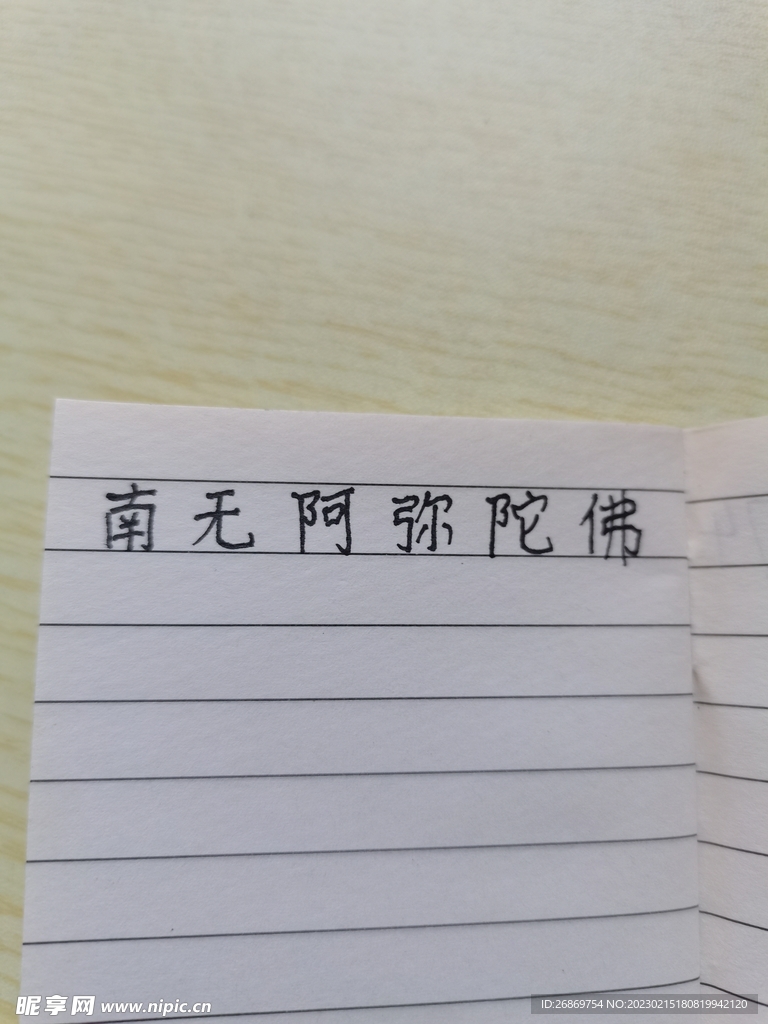 南无阿弥陀佛
昵享网 www.nipic.cn
ID:26869754 NO:20230215180819942120